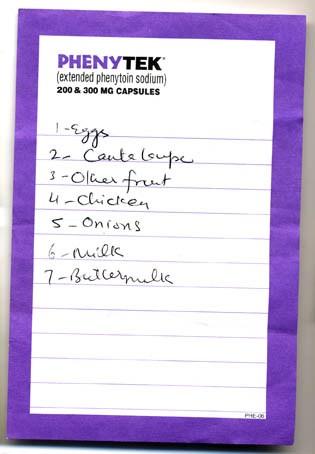 PHENYTEK®
(extended phenytoin sodium)
200 & 300 MG CAPSULES
1-Eggs
2- Cantaloupe
3-Other fruit
4-Chicken
5-Onions
6-Milk
7-Buttermilk
PHE-06